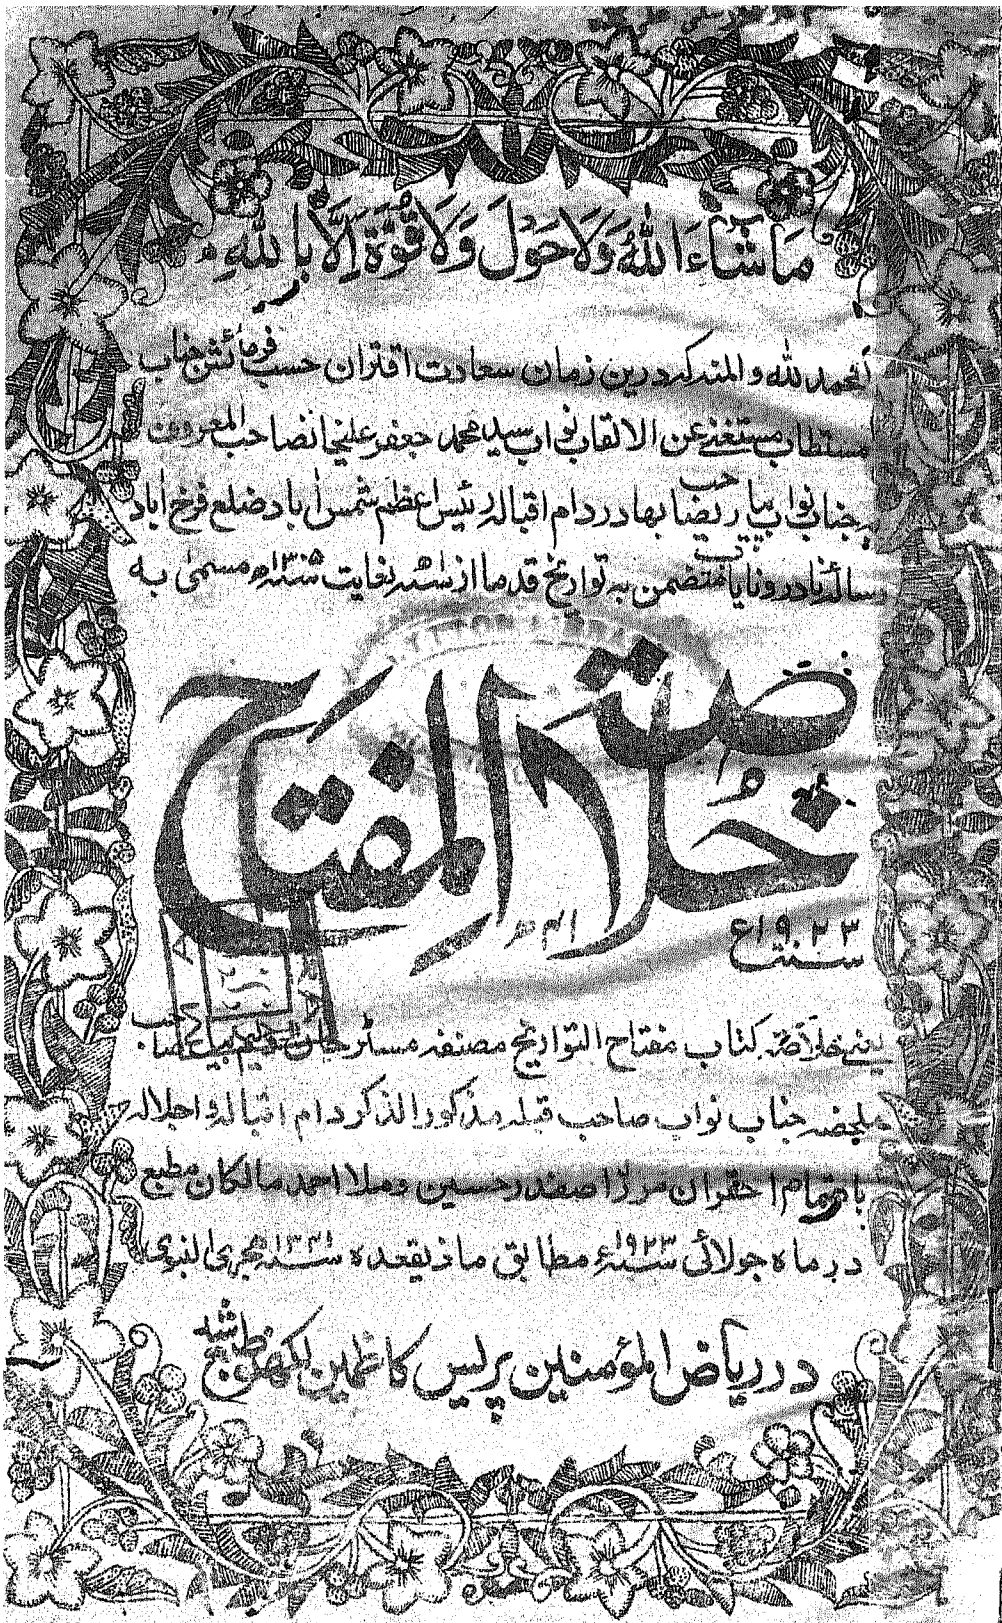 مَا شَآءَ اللّٰهُ وَلَا حَوْلَ وَلَا قُوَّةَ اِلَّا بِاللّٰهِ
الحمد للہ والمنہ کہ درین زمان سعادت اقتران حسب فرمائش جناب
مستطاب مستغنے عن الالقاب نواب سید محمد جعفر علیخانصاحب المعروف
بہ جناب نواب پیاریصاحب بہادر دام اقبالہ رئیس اعظم شمس آباد ضلع فرخ آباد
رسالۂ نادر و نایاب متضمن بہ تواریخ قدما از لغایت سنہ ۱۳۰۵ھ مسمیٰ بہ
خُلاصۃ المفتاح
سنہ ۱۹۲۳ع
یعنے خلاصۂ کتاب مفتاح التواریخ مصنفہ مسٹر ولیم بیل صاحب
ملخصہ جناب نواب صاحب قبلہ مذکور الذکر دام اقبالہ و اجلالہ
باہتمام احقران مرزا صفدر حسین و ملا احمد مالکان مطبع
در ماہ جولائی سنہ ۱۹۲۳ء مطابق ماہ ذیقعدہ سنہ ۱۳۴۱ ہجری النبوی
در ریاض المؤمنین پریس کاظمین لکھنؤ طبع شد